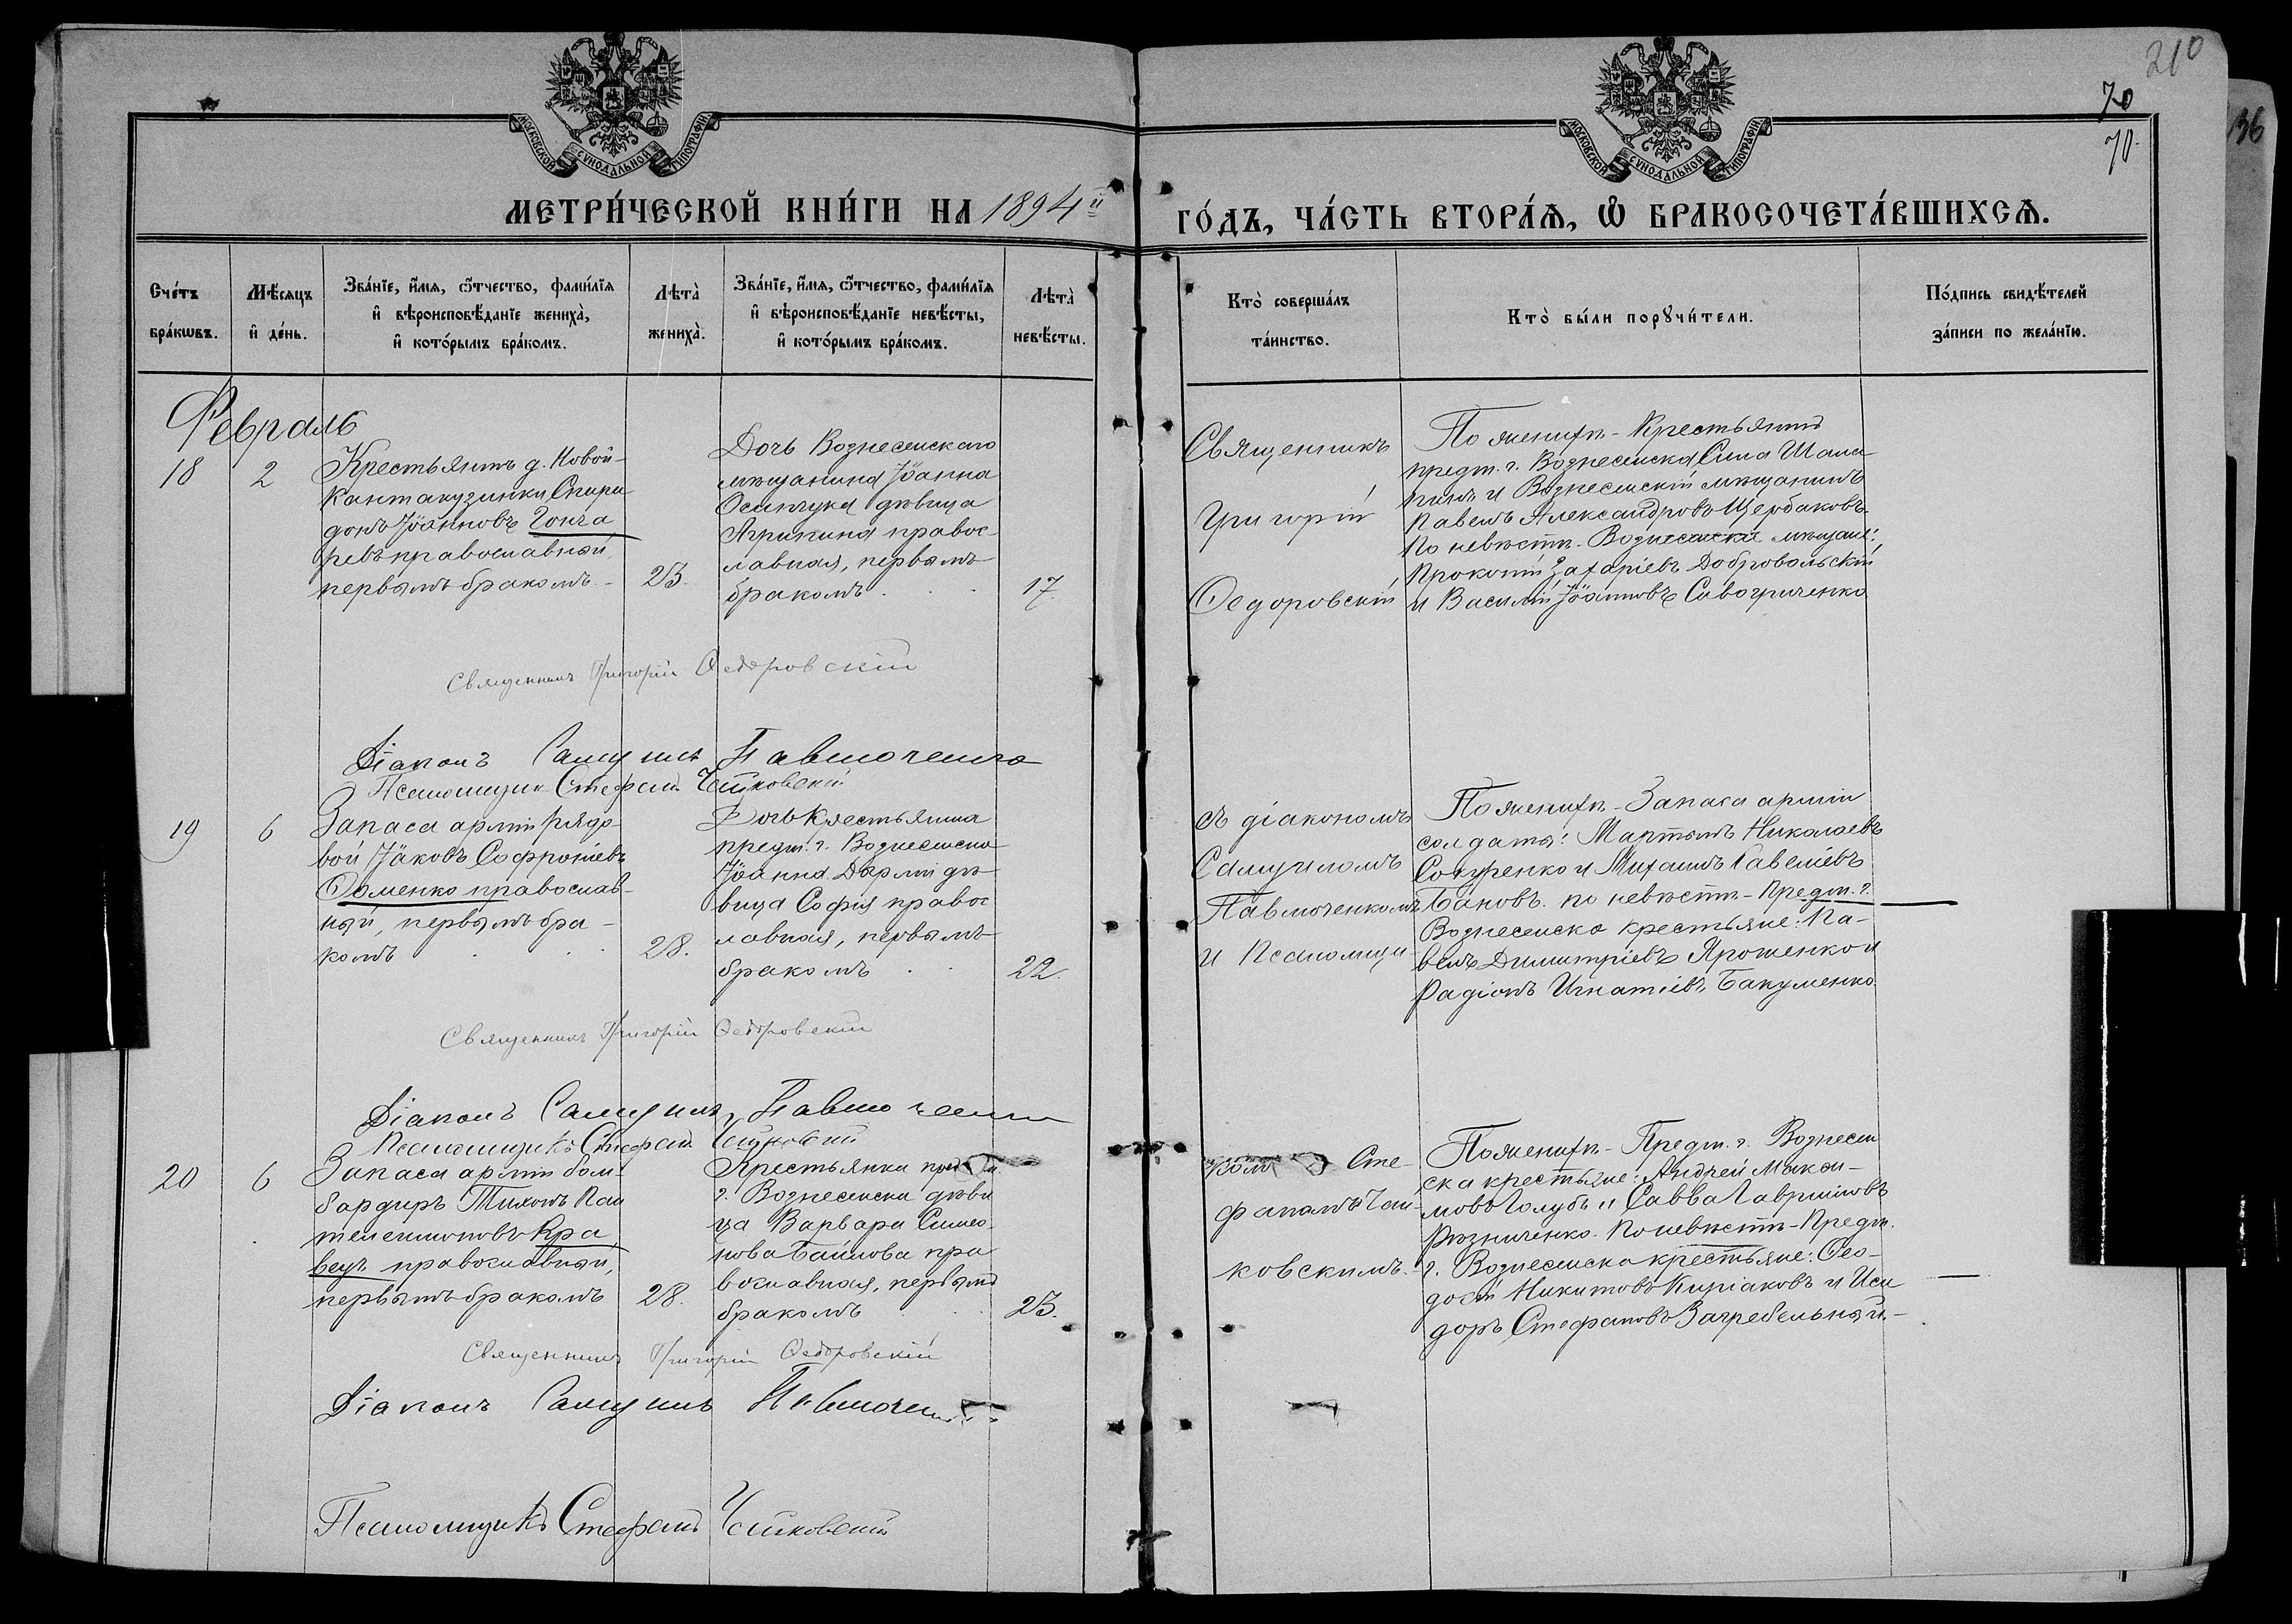 210
70
70.
136
МОСКОВСКОЙ СѴНОДАЛЬНОЙ ТИПОГРАФІИ
МОСКОВСКОЙ СѴНОДАЛЬНОЙ ТИПОГРАФІИ
МЕТРИ́ЧЕСКОЙ КНИ́ГИ НА 1894й
ГО́ДЪ, ЧА́СТЬ ВТОРА́Ѧ, Ѡ҆ БРАКОСОЧЕТА́ВШИХСѦ.
Сче́тъ
бра́кѡвъ.
Мѣ́сяцъ
и҆ де́нь.
Зва́нїе, и҆́мя, ѻ҆́тчество, фами́лїя
и҆ вѣроисповѣ́данїе жениха̀,
и҆ кото́рымъ бра́комъ.
Лѣта̀
жениха̀.
Зва́нїе, и҆́мя, ѻ҆́тчество, фами́лїя
и҆ вѣроисповѣ́данїе невѣ́сты,
и҆ кото́рымъ бра́комъ.
Лѣта̀
невѣ́сты.
Кто̀ соверша́лъ
та́инство.
Кто̀ бы́ли порꙋчи́тели.
По́дпись свидѣ́телей
за́писи по жела́нїю.
Февраль
18
2
Крестьянинъ д. Новой-
Кантакузинки Спири
донъ Іоанновъ Гонча
ревъ православный,
первымъ бракомъ.-
23.
Дочь Вознесенскаго
мѣщанина Іоанна
Осипчука дѣвица
Агрипина правос
лавная, первымъ
бракомъ . . .
17.
Священникъ
Григорій
Федоровскій
По женихѣ - Крестьянинъ
предм. г. Вознесенска Сила Шала
пинъ и Вознесенскій мѣщанинъ
Павелъ Александровъ Щербаковъ.
По невѣстѣ - Вознесенскіе мѣщане:
Прокопій Захаріевъ Добровольскій
и Василій Іоанновъ Савогриченко
Священникъ Григорій Федоровскій
Діаконъ Самуилъ Павлюченко
Псаломщик Стефанъ Чайковскій
19
6
Запаса арміи рядо-
вой Іаковъ Софроніевъ
Фоменко православ-
ный, первымъ бра-
комъ . .
28.
Дочь Крестьянина
предм. г. Вознесенска
Іоанна Дарміи дѣ-
вица Софія правос
лавная, первымъ
бракомъ . .
22.
съ діакономъ
Самуиломъ
Павлюченкомъ
и Псаломщи-
По женихѣ - Запаса арміи
солдаты: Мартынъ Николаевъ
Сокуренко и Михаилъ Савеліевъ
Бановъ. по невѣстѣ - Предм. г.
Вознесенска крестьяне: Па-
велъ Димитріевъ Ярошенко и
Радіонъ Игнатіевъ Бакуменко
Священникъ Григорій Федоровскій
Діаконъ Самуилъ Павлюченко
Псаломщикъ Стефанъ Чайковскій
20
6
Запаса арміи бом-
бардиръ Тихонъ Пан
телеимоновъ Кра
вецъ православный,
первымъ бракомъ
28.
Крестьянка предм.
г. Вознесенска дѣви
ца Варвара Симео-
нова Баилова пра
вославная, первымъ
бракомъ . .
23.
комъ Сте-
фаномъ Чай-
ковскимъ.
По женихѣ - Предм. г. Вознесен
ска крестьяне: Андрей Макси-
мовъ Голубь и Савва Гавриловъ
Рѣзниченко. По невѣстѣ - Предм.
г. Вознесенска крестьяне: Фео-
досій Никитовъ Киріаковъ и Иси
доръ Стефановъ Загребельный.-
Священникъ Григорій Федоровскій
Діаконъ Самуилъ Павлюченко
Псаломщикъ Стефанъ Чайковскій